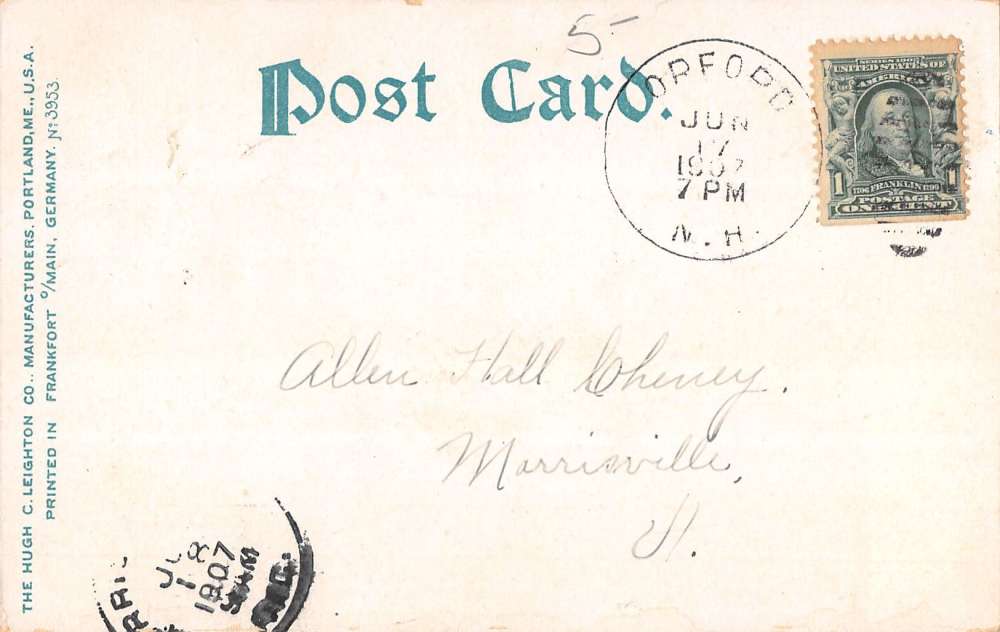 5-
Post Card.
ORFORD
JUN
17
1907
7 PM
N.H.
SERIES 1902
UNITED STATES OF
AMERICA
1 1706 FRANKLIN 1790 1
POSTAGE
ONE CENT
Allen Hall Cheney.
Morrisville,
Vt.
THE HUGH C. LEIGHTON CO., MANUFACTURERS, PORTLAND, ME., U.S.A.
PRINTED IN FRANKFORT O/MAIN, GERMANY. No 3953
18
1907
AM
REC.